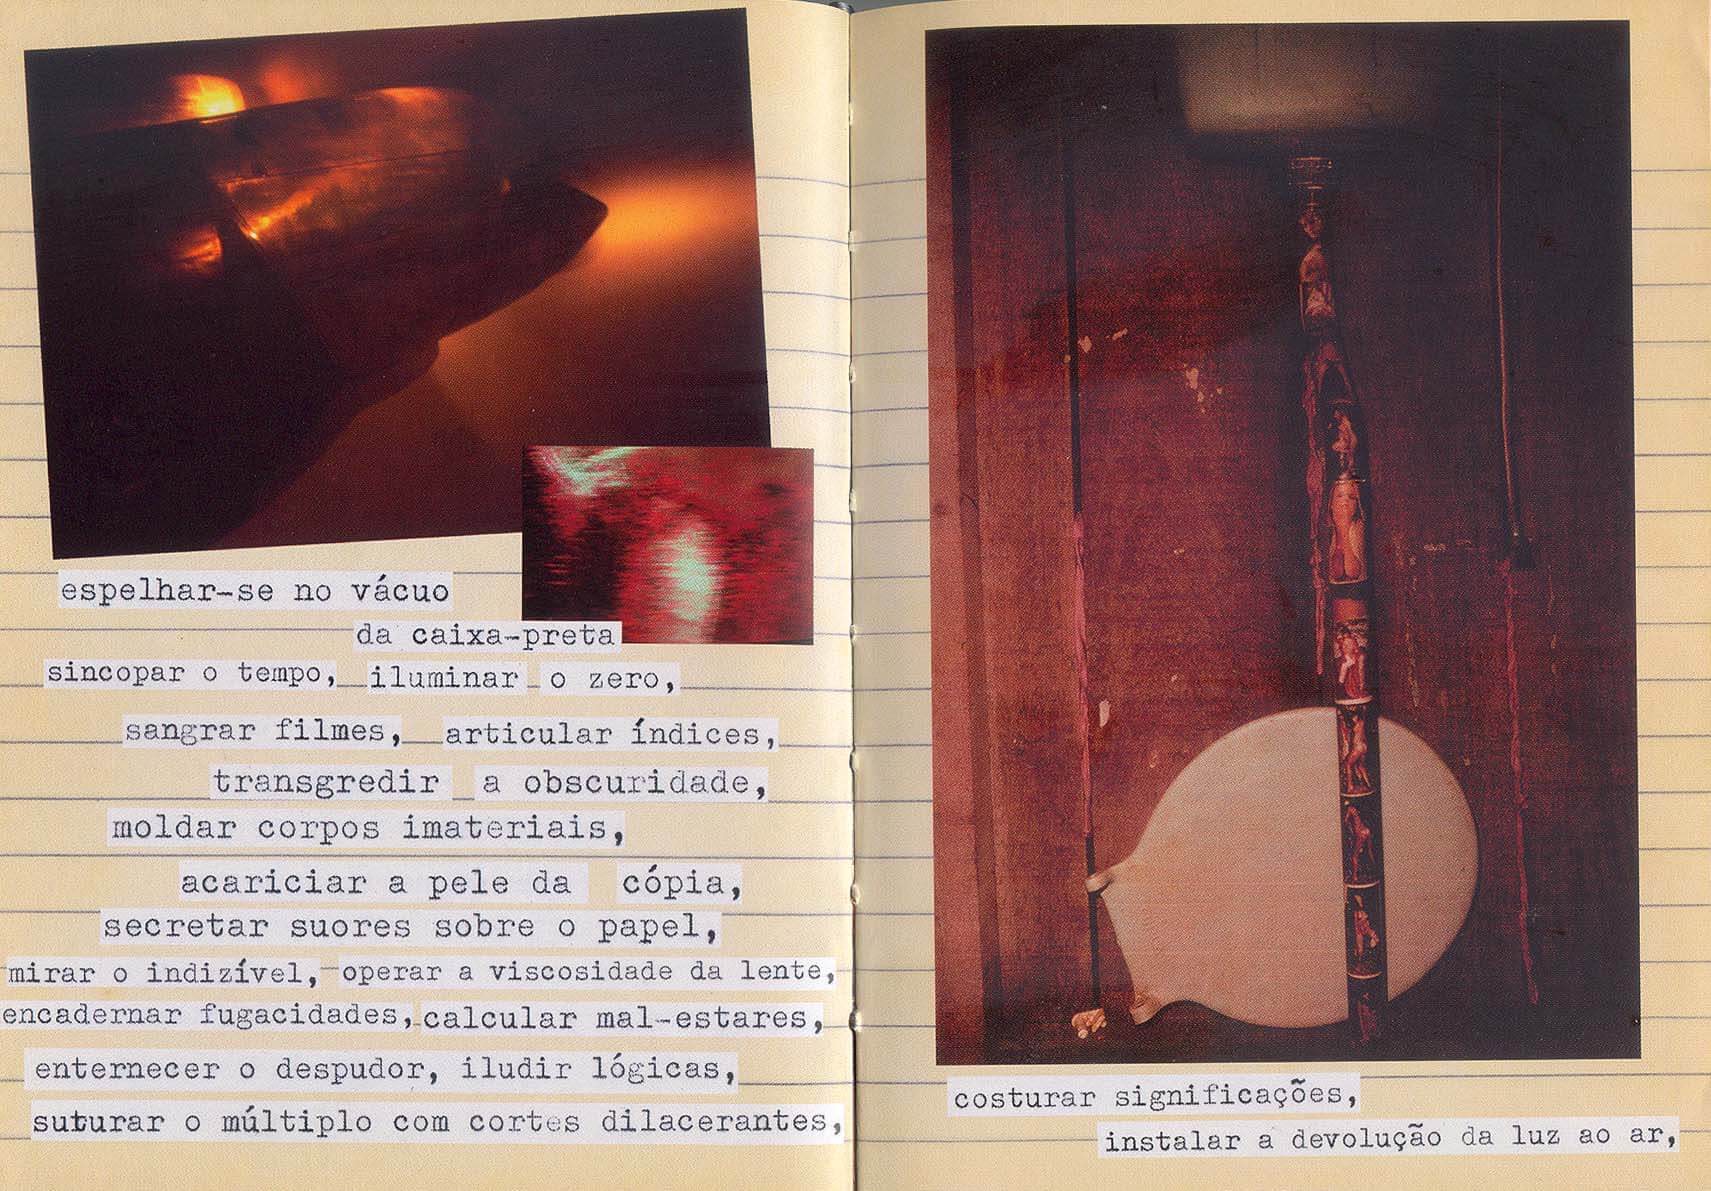 espelhar-se no vácuo
da caixa-preta
sincopar o tempo, iluminar o zero,
sangrar filmes, articular índices,
transgredir a obscuridade,
moldar corpos imateriais,
acariciar a pele da cópia,
secretar suores sobre o papel,
mirar o indizível, operar a viscosidade da lente,
encadernar fugacidades, calcular mal-estares,
enternecer o despudor, iludir lógicas,
suturar o múltiplo com cortes dilacerantes,
costurar significações,
instalar a devolução da luz ao ar,